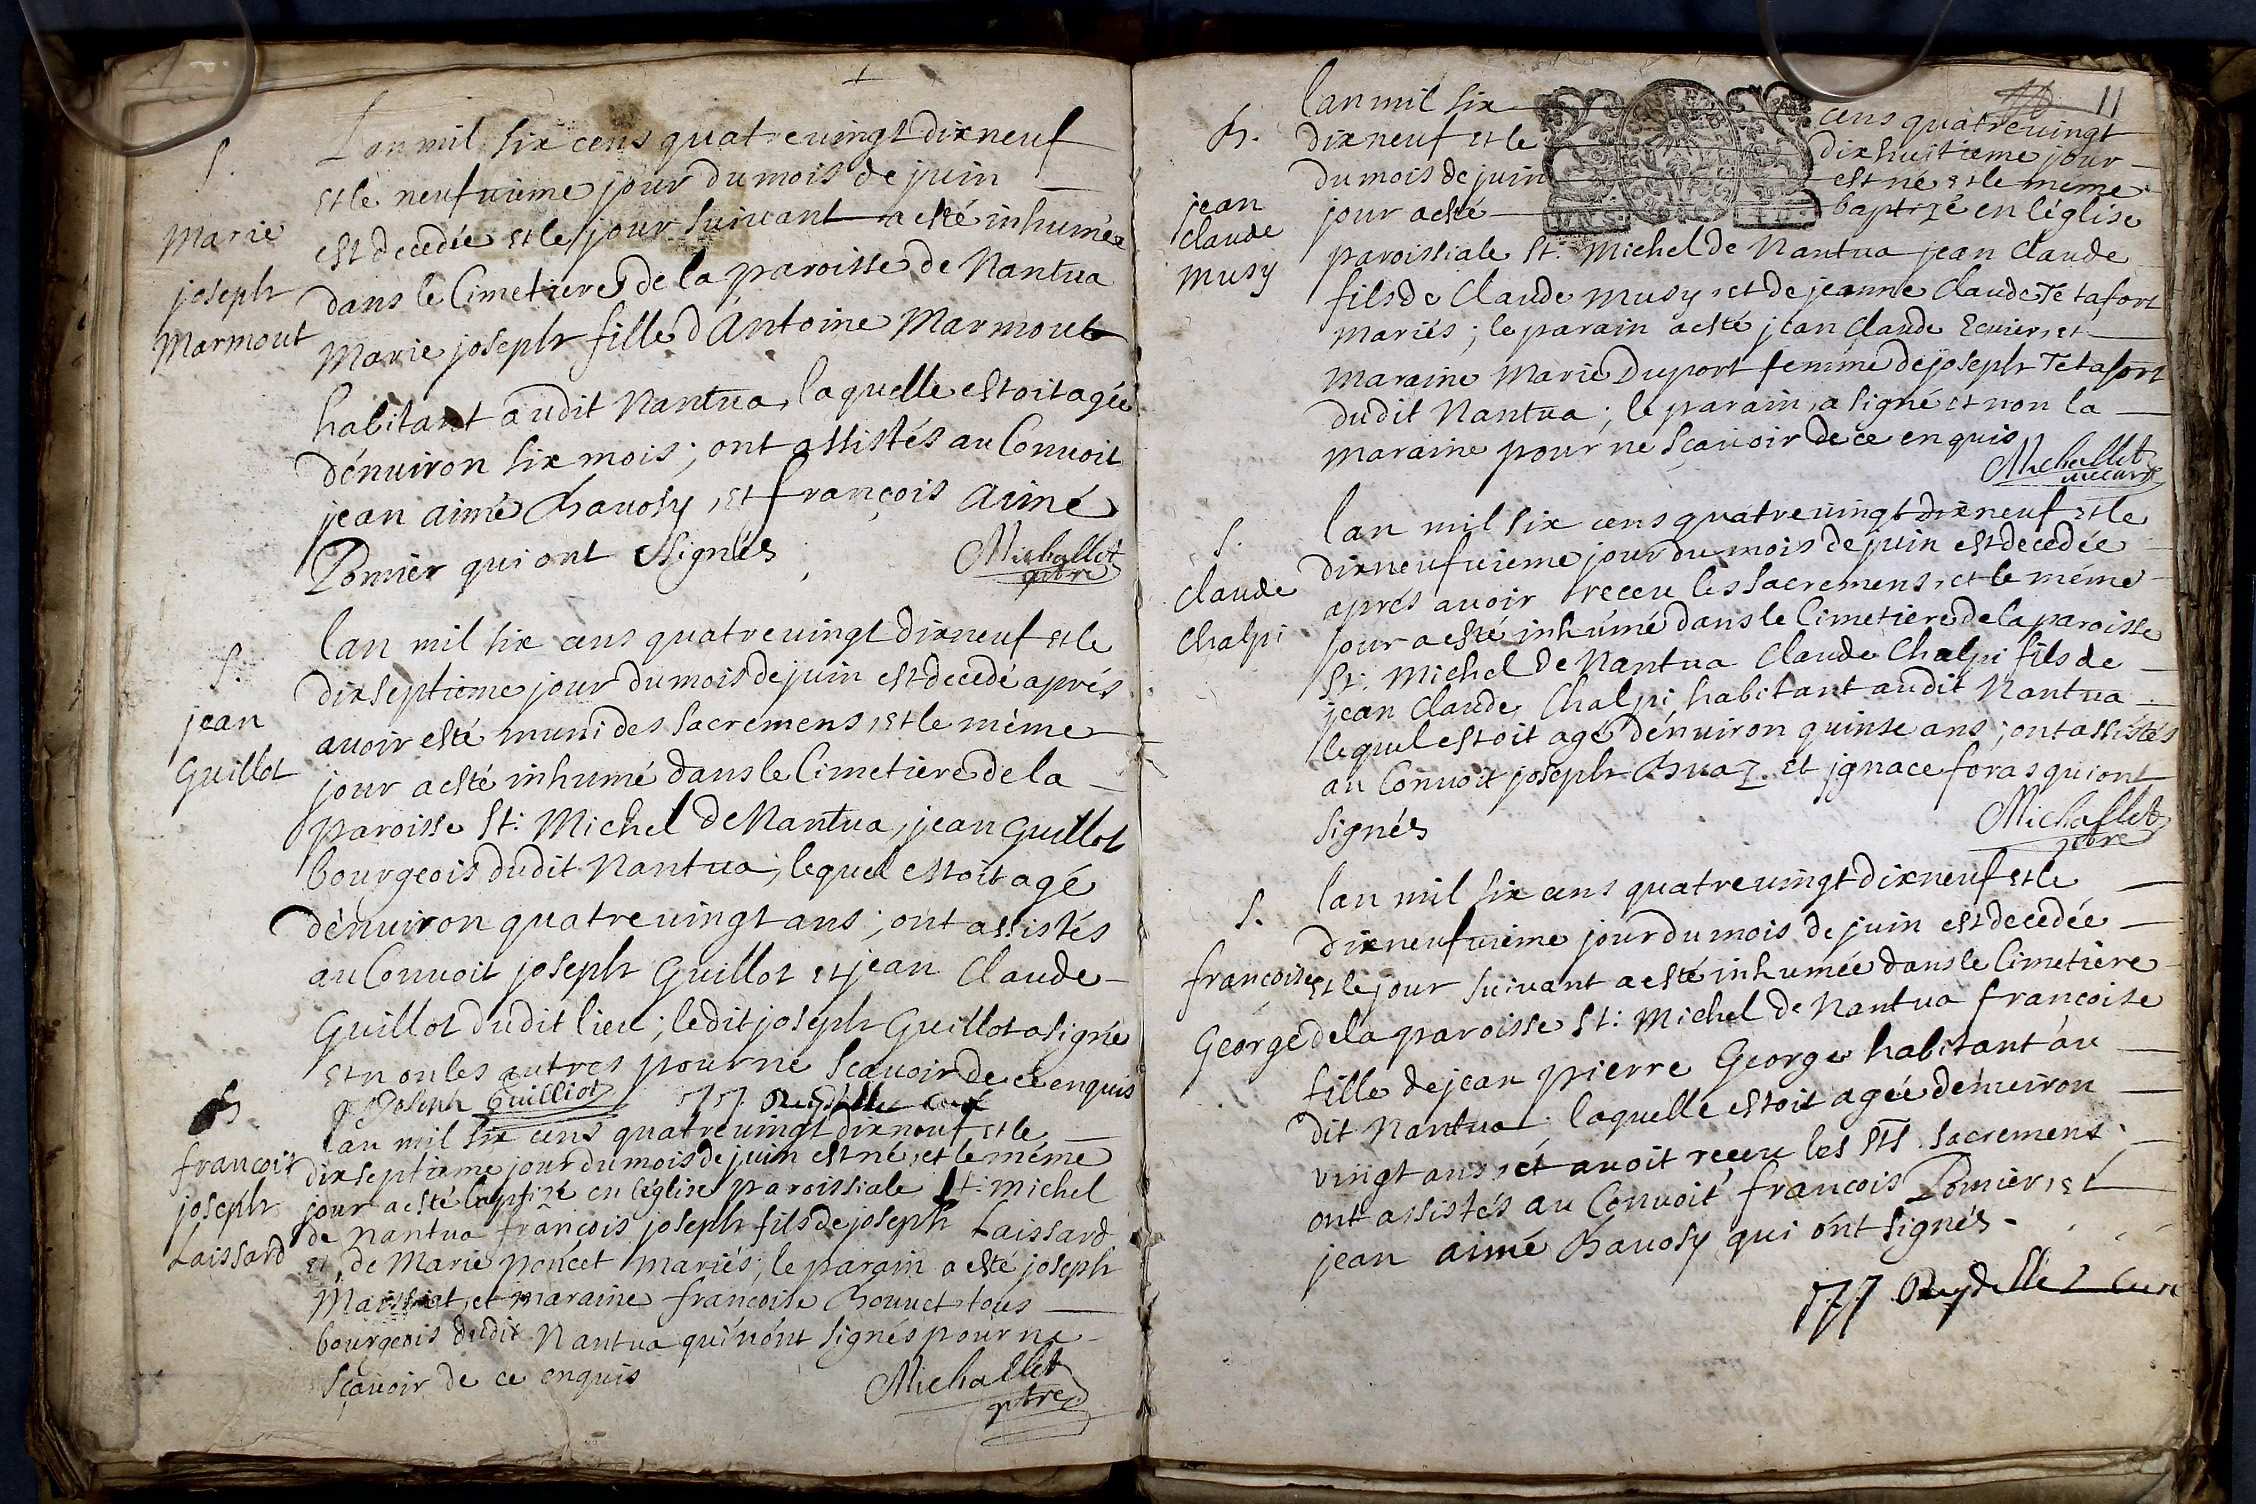 S.
Marie
joseph
Marmout
Lan mil six cens quatrevingt dixneuf
et le neufuieme jour du mois de juin
est decedée et le jour suiuant a esté inhumée
dans le Cimetiere de la paroisse de Nantua
Marie joseph fille d'Antoine Marmout
habitant audit Nantua, laquelle estoit agée
d'énuiron six mois; ont assistés au Conuoit
jean aimé Bauosy, et françois aimé
Pomier qui ont signés
Michallet
pbre
S.
jean
Guillot
lan mil six cens quatreuingt dixneuf et le
dixseptieme jour du mois de juin est decedé aprés
auoir esté muni des sacremens, et le méme
jour a esté inhumé dans le Cimetiere de la
paroisse St: Michel de Nantua, jean Guillot
bourgeois dudit Nantua; lequel estoit agé
dénuiron quatreuingt ans; ont assistés
au Conuoit joseph Guillot et jean Claude
Guillot dudit lieu; ledit joseph Guillot a signé
et non les autres pour ne scauoir de ce enquis
Joseph Guilliot
B.
francois
joseph
Laissard
lan mil six cens quatreuingt dixneuf et le
dixseptieme jour du mois de juin est né, et le méme
jour a esté baptizé en léglise paroissiale St: Michel
de Nantua françois joseph fils de joseph Laissard
et de Marie poncet mariés; le parain a esté joseph
Maissiat, et maraine francoise Bouuet tous
bourgeois dudit Nantua qui n'ont signés pour ne
sçauoir de ce enquis
Michallet
pbre
11
B.
jean
claude
musy
lan mil six cens quatreuingt
dixneuf et le dixhuitieme jour
du mois de juin est né et le méme
jour a esté baptizé en léglise
paroissiale St: Michel de Nantua jean Claude
fils de Claude Musy, et de jeanne Claude Tetafort
mariés; le parain a esté jean Claude Ecuier, et
maraine Marie Duport femme de joseph Tetafort
dudit Nantua; le parain a signé et non la
maraine pour ne sçauoir de ce enquis
Michallet
uicaire
S.
Claude
Chalpi
lan mil six cens quatreuingt dixneuf et le
dixneufuieme jour du mois de juin est decedée
aprés auoir receu les sacremens, et le méme
jour a esté inhumé dans le Cimetiere de la paroisse
St: Michel de Nantua Claude Chalpi fils de
jean Claude Chalpi habitant audit Nantua
lequel estoit agé dénuiron quinse ans; ont assistés
au Conuoit joseph Buaz. et jgnace foras qui ont
signés
Michallet
pbre
S.
francoise
George
lan mil six cens quatreuingt dixneuf et le
dixneufuieme jour du mois de juin est decedée
et le jour suiuant a esté inhumée dans le Cimetiere
de la paroisse St: Michel de Nantua françoise
fille de jean pierre George habitant au
dit Nantua; laquelle estoit agée dénuiron
vingt ans, et auoit receu les Sts. sacremens
ont assistés au Conuoit francois Pomier, et
jean aimé Bauosy qui ont signés.